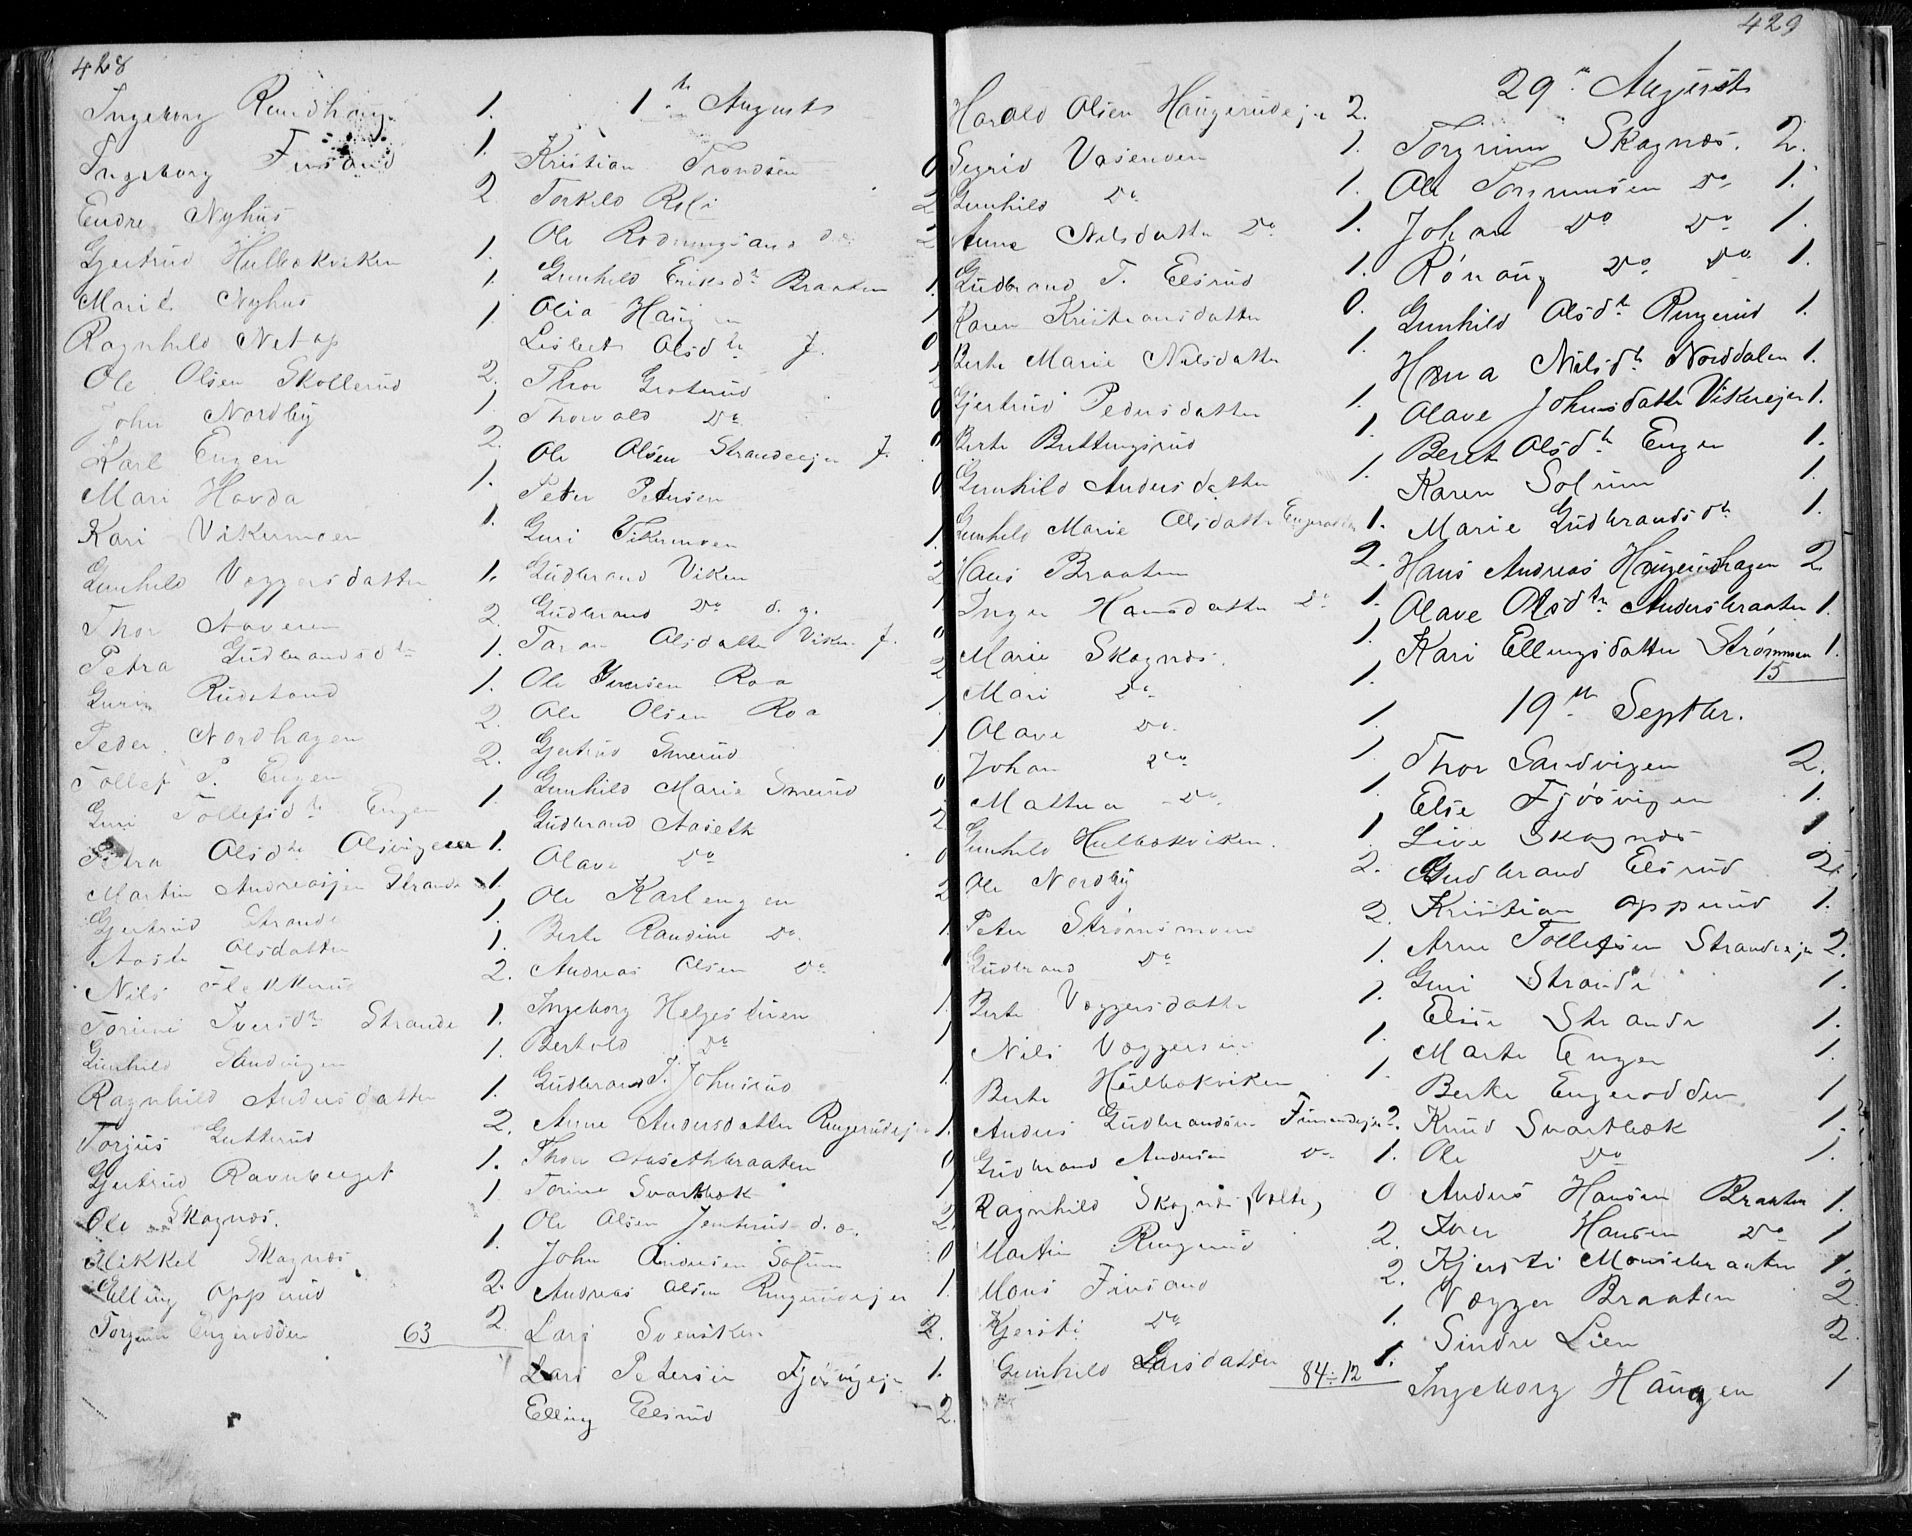 428
Ingeborg Rundhaug 1.
Ingeborg Finsand 1.
Endre Nyhus 2
Gjertrud Hulbækviken 1.
Marit Nyhus 1.
Ragnhild Netop 1.
Ole Olsen Skollerud 2.
John Nordby 1.
Karl Engen 2.
Mari Hovda 1.
Kari Vikermoen 1.
Gunhild Væggersdatter 1.
Thor 2.
Petra Gudbrandsdtr 1.
Guri Rudstand 1.
Peder Nordhagen 2.
Tollef P. Engen 2.
Guri Tollefsdtr Engen 1.
Petra Olsdtr 1.
Martin Strande 1.
Gjertrud Strande 1.
Aaste Olsdatter 1.
Nils Flekkerud 2.
Torine Iversdtr Strande 1.
Gunhild Sandvigen 1.
Ragnhild Andersdatter 1.
Torjus Gutterud 2.
Gjertrud Ravnberget 1.
Ole Skagnæs. 1.
Mikkel Skagnæs 1.
Elling Opprud 2.
Torgrim Engerodden 2.
63
1ste August
Kristian Trondsen 0
Torkild Roli 2
Ole 2
Gunhild Eriksdtr Braaten 1.
Olia Haugen 1
Lisbet Olsdtr f. 0
Thor Groterud 2
Thorvald Do 0
Ole Olsen Strandeejer f. 0
Peter Petersen 0
Guri Vikermoen 1.
Gudbrand Viken 2
Gudbrand Do d. y. 1
Olsdatter Viken f. 0
Ole Iversen Roa 2
Ole Olsen Roa 1
Gjertrud Smerud 1
Gunhild Marie Smerud 0
Gudbrand Aaseth 2
Olave Do 0
Ole Karlengen 2
Berte Randine Do. 1
Andreas Olsen Do 1
Ingeborg Helgestuen 1
Bertold Do 1
Gudbrand T. Johnsrud 1
Anne Andersdatter Ringerudejer 1.
Thor Aasethbraaten 0
Torine Svartbæk 1
Ole Olsen Jenserud d. æ. 2
John Andersen Solum 0
Andreas Olsen Ringerudejer 1.
Lars Svensklien 2.
Lars Petersen Fjøsvigejer 1.
Elling Elsrud 2.
429
Harald Olsen Haugerudejer 2.
Sigrid Vasenden 1.
Gunhild Do 1.
Anne Nilsdatter Do 1.
Gudbrand T. Elsrud 1.
Karen Kristiansdatter 0.
Berte Marie Nilsdatter 1.
Gjertrud Pedersdatter 1.
Berte Buttingsrud 1.
Gunhild Andersdatter 1.
Gunhild Marie Olsdatter Engerodden 1.
Hans Braaten 2.
Inger Hansdatter Do 1.
Marie Skagnæs. 1.
Mari Do 1.
Olave Do. 1.
Johan Do 1.
Mathea Do. 1.
Gunhild Hulbækviken. 1.
Ole Nordby 2.
Peter Strømsmoen 2.
Gudbrand Do 1.
Berte Væggersdatter 1.
Nils Væggersen 1.
Berte Hulbækviken 1.
Anders Gudbrandsen Finsandejer 2.
Gudbrand Andersen Do 1.
Ragnhild Skagnæs 0
Martin Ringerud 2.
Mons Finsand 2.
Kjersti Do 1.
Gunhild Larsdatter 1.
84÷12
29de August
Torgrim Skagnæs. 2.
Ole Torgrimsen Do 1.
Johan Do Do 1.
Rønaug Do Do 1.
Gunhild Olsdtr Ringerud 1.
Hanna Nilsdtr Norddalen 1.
Olave Johnsdatter Vikerejer 1.
Beret Olsdtr Engen 1.
Karen Solum 1.
Marie Gudbrandsdtr 1.
Hans Andreas Haugerudhagen 2
Olave Olsdtr Andersbraaten 1.
Kari Ellingsdatter Strømmen 1.
15
19de Septbr.
Thor Sandvigen 2.
Else Fjøsvigen 1.
Live Skagnæs 1
Gudbrand Elsrud 2
Kristian Opperud 1.
Arne Tollefsen Strandeejer 2.
Guri Strande 1.
Elise Strande 1.
Marte Engen 1.
Berte Engerodden 1
Knud Svartbæk 1.
Ole Do 1.
Anders Hansen Braaten 1.
Iver Hansen Do 1
Kjersti Monsebraaten 1.
Vægger Braaten 2
Sindre Lien 2
Ingeborg Haugen 1